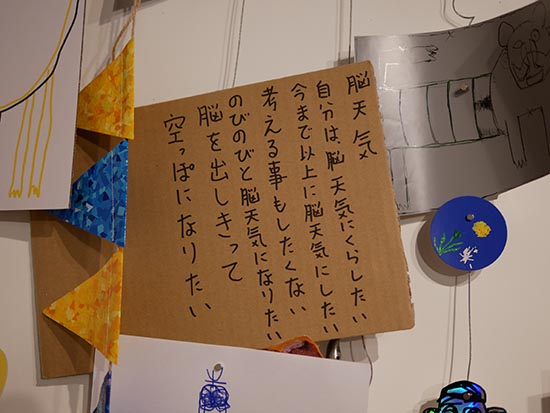 脳天気
自分は、脳天気にくらしたい
今まで以上に脳天気にしたい
考える事もしたくない
のびのびと脳天気になりたい
脳を出しきって
空っぽになりたい